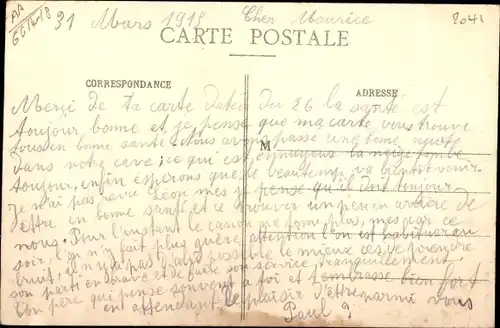 AA
66/4/8
31 Mars 1915 Cher Maurice
2041
CARTE POSTALE
CORRESPONDANCE
ADRESSE
M
Merçi de ta carte datee du 26 la santé est
toujour bonne et je pense que ma carte vous trouve
tous en bonne santé nous avons passé une bonne nuite
dans notre cave; ce qui est ennuyeux la neige tombe
toujour, enfin ésperons que le beau temp va bientôt venir.
Je n'ai pas revu Léon mes je pense qu'il doit toujour
d'être en bonne santé et ce trouver un peu en arière de
nous. Pour l'instant le canon ne tonne plus, mes par ce
soir, l'on n'y fait plus guère attention l'on est habituer au
bruit, il n'y a pas d'autre possible le mieux ces de prendre
son parti en brave et de faire son service tranquillement
Ton père qui pense souvent a toi et t'embrasse bien fort
en attendant le plaisir d'être parmi vous
Paul